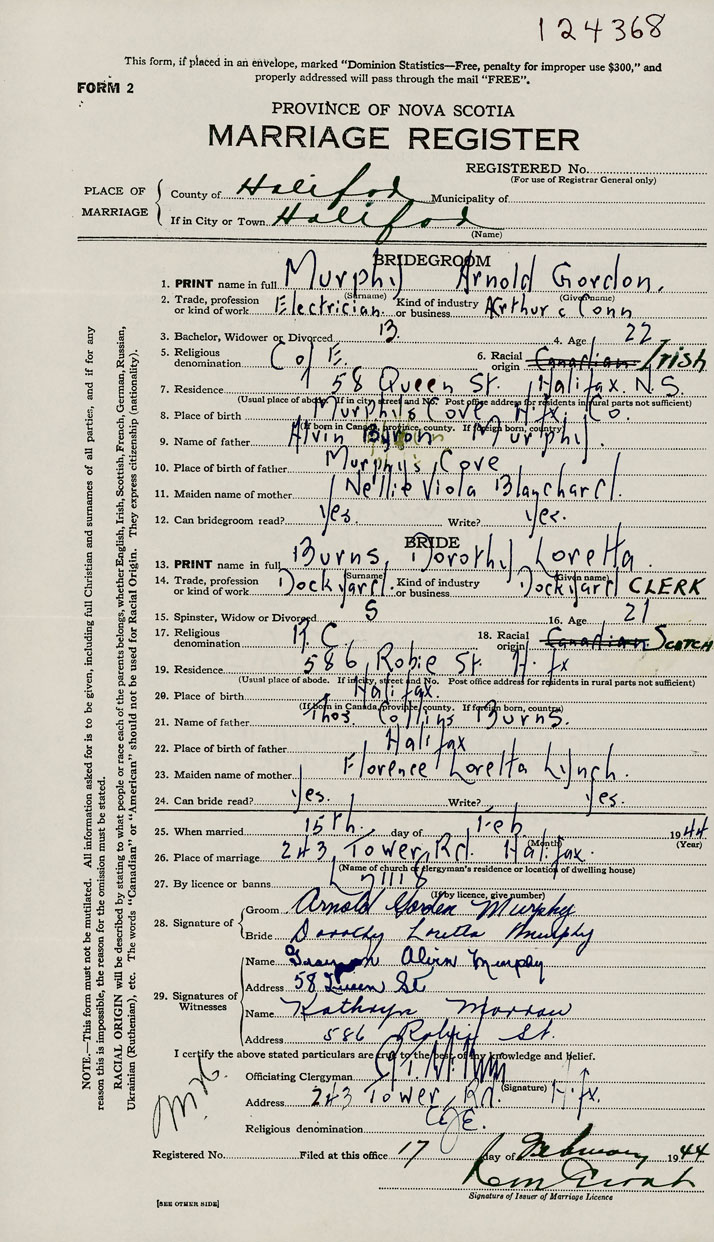 124368
This form, if placed in an envelope, marked "Dominion Statistics—Free, penalty for improper use $300," and
properly addressed will pass through the mail "FREE".
FORM 2
PROVINCE OF NOVA SCOTIA
MARRIAGE REGISTER
REGISTERED No.
(For use of Registrar General only)
PLACE OF MARRIAGE
County of Halifax Municipality of
If in City or Town Halifax
(Name)
BRIDEGROOM
1. PRINT name in full Murphy Arnold Gordon.
(Surname) (Given name)
2. Trade, profession or kind of work Electrician. Kind of industry or business Arthur & Conn
3. Bachelor, Widower or Divorced B. 4. Age 22
5. Religious denomination C of E. 6. Racial origin Canadian Irish
7. Residence 58 Queen St. Halifax N.S.
(Usual place of abode. If in city, street and No. Post office address for residents in rural parts not sufficient)
8. Place of birth Murphy's Cove Hfx. Co.
(If born in Canada, province, county. If foreign born, country)
9. Name of father Alvin Byron Murphy.
10. Place of birth of father Murphy's Cove
11. Maiden name of mother Nellie Viola Blanchard.
12. Can bridegroom read? Yes. Write? Yes.
BRIDE
13. PRINT name in full Burns, Dorothy Loretta.
(Surname) (Given name)
14. Trade, profession or kind of work Dockyard. Kind of industry or business Dockyard CLERK
15. Spinster, Widow or Divorced S 16. Age 21
17. Religious denomination R.C. 18. Racial origin Canadian SCOTCH
19. Residence 586 Robie St. Hfx
(Usual place of abode. If in city, street and No. Post office address for residents in rural parts not sufficient)
20. Place of birth Halifax.
(If born in Canada, province, county. If foreign born, country)
21. Name of father Thos. Collins Burns.
22. Place of birth of father Halifax
23. Maiden name of mother Florence Loretta Lynch.
24. Can bride read? Yes. Write? Yes.
25. When married 15th. day of Feb 1944
(Month) (Year)
26. Place of marriage 243 Tower Rd. Halifax.
(Name of church or clergyman's residence or location of dwelling house)
27. By licence or banns L
(If by licence, give number)
28. Signature of
Groom Arnold Gordon Murphy
Bride Dorothy Loretta Murphy
29. Signatures of Witnesses
Name Alvin Murphy
Address 58 Queen St
Name Kathryn Morrow
Address 586 Robie St.
I certify the above stated particulars are true to the best of my knowledge and belief.
Officiating Clergyman
(Signature)
Address 243 Tower Rd. Hfx.
Religious denomination C of E.
Registered No. Filed at this office 17 day of February 1944
Signature of Issuer of Marriage Licence
[SEE OTHER SIDE]
NOTE.—This form must not be mutilated. All information asked for is to be given, including full Christian and surnames of all parties, and if for any
reason this is impossible, the reason for the omission must be stated.
RACIAL ORIGIN will be described by stating to what people or race each of the parents belongs, whether English, Irish, Scottish, French, German, Russian,
Ukrainian (Ruthenian), etc. The words "Canadian" or "American" should not be used for Racial Origin. They express citizenship (nationality).